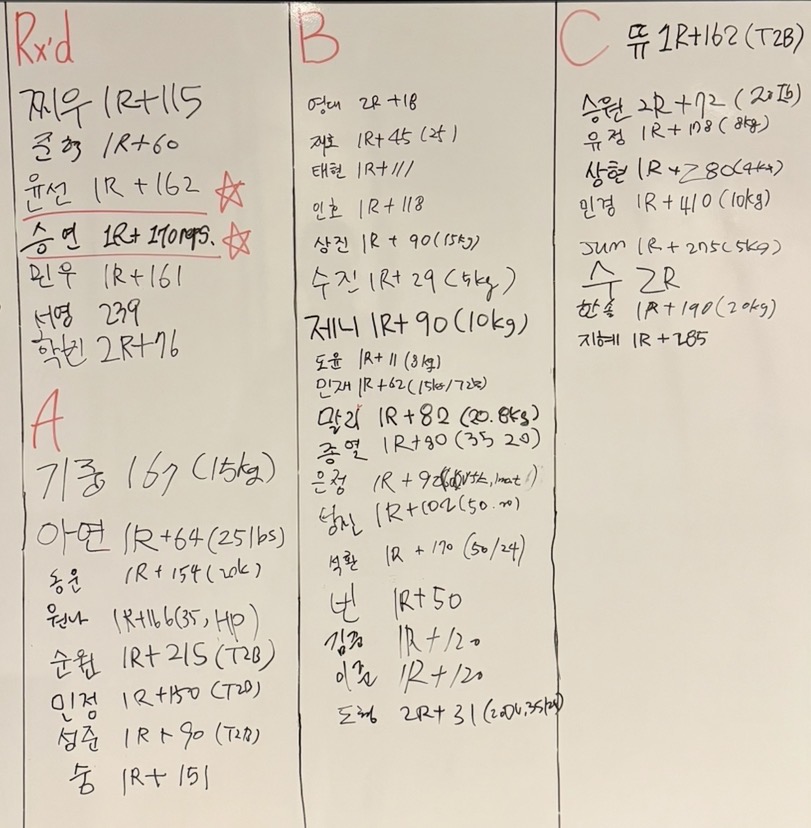 Rx'd
찌우 1R+115
준혁 1R+60
윤선 1R+162
승연 1R+170reps.
민우 1R+161
서영 239
학빈 2R+76
A
기중 167 (15kg)
아연 1R+64(25lbs)
동운 1R+154(20k)
원나 1R+166(35, HP)
순원 1R+215(T2B)
민정 1R+150 (T2B)
성준 1R+90 (T2B)
숭 1R+151
B
영대 2R+18
재호 1R+45 (25)
태현 1R+111
인호 1R+118
상진 1R+90(15kg)
수진 1R+29(5kg)
제니 1R+90(10kg)
도윤 1R+11(8kg)
민재 1R+62(15kg/T2B)
말리 1R+82 (20.8kg)
종열 1R+90(35 20)
은정 1R+92
성진 1R+102(50.20)
석환 1R+170 (50/24)
빈 1R+50
김준 1R+120
이준 1R+120
도형 2R+31
C
뚜 1R+162(T2B)
승원 2R+72 (20lb)
유정 1R+178(8kg)
상현 1R+280(4kg)
민경 1R+410(10kg)
Jum 1R+275(5kg)
수 2R
한솔 1R+190(20kg)
지혜 1R+285